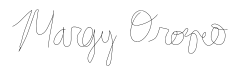 Margy Orozco